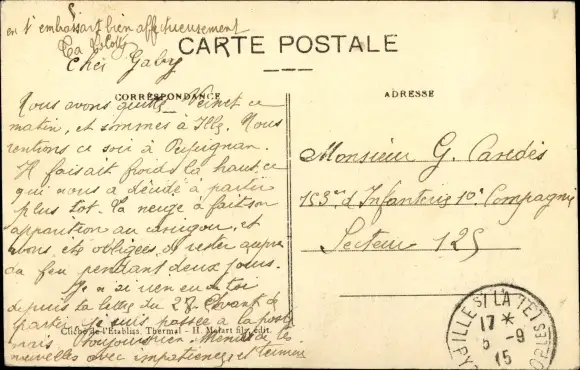 en t'embrassant bien affectueusement
Ta
CARTE POSTALE
Cher Gaby
CORRESPONDANCE
ADRESSE
Nous avons quitté Vernet ce
matin, et sommes à Ille. Nous
rentrons ce soir à Perpignan.
Il faisait froid là haut, ce
qui nous a décidé à partir
plus tôt. La neige a fait son
apparition au Canigou, et
avons été obligées de rester auprès
du feu pendant deux jours.
Je n'ai rien eu de toi
depuis ta lettre du 27. Avant de
partir je suis passée à la poste
Cliché de l'Établis. Thermal - H. Malart fils, édit.
mais toujours rien.
nouvelles avec impatience et termine
Monsieur G. Paredès
153me d'Infanterie 10e Compagnie
Secteur 125
ILLE S/ LA TET
17 *
5 - 9
15
PYRÉES ORLES